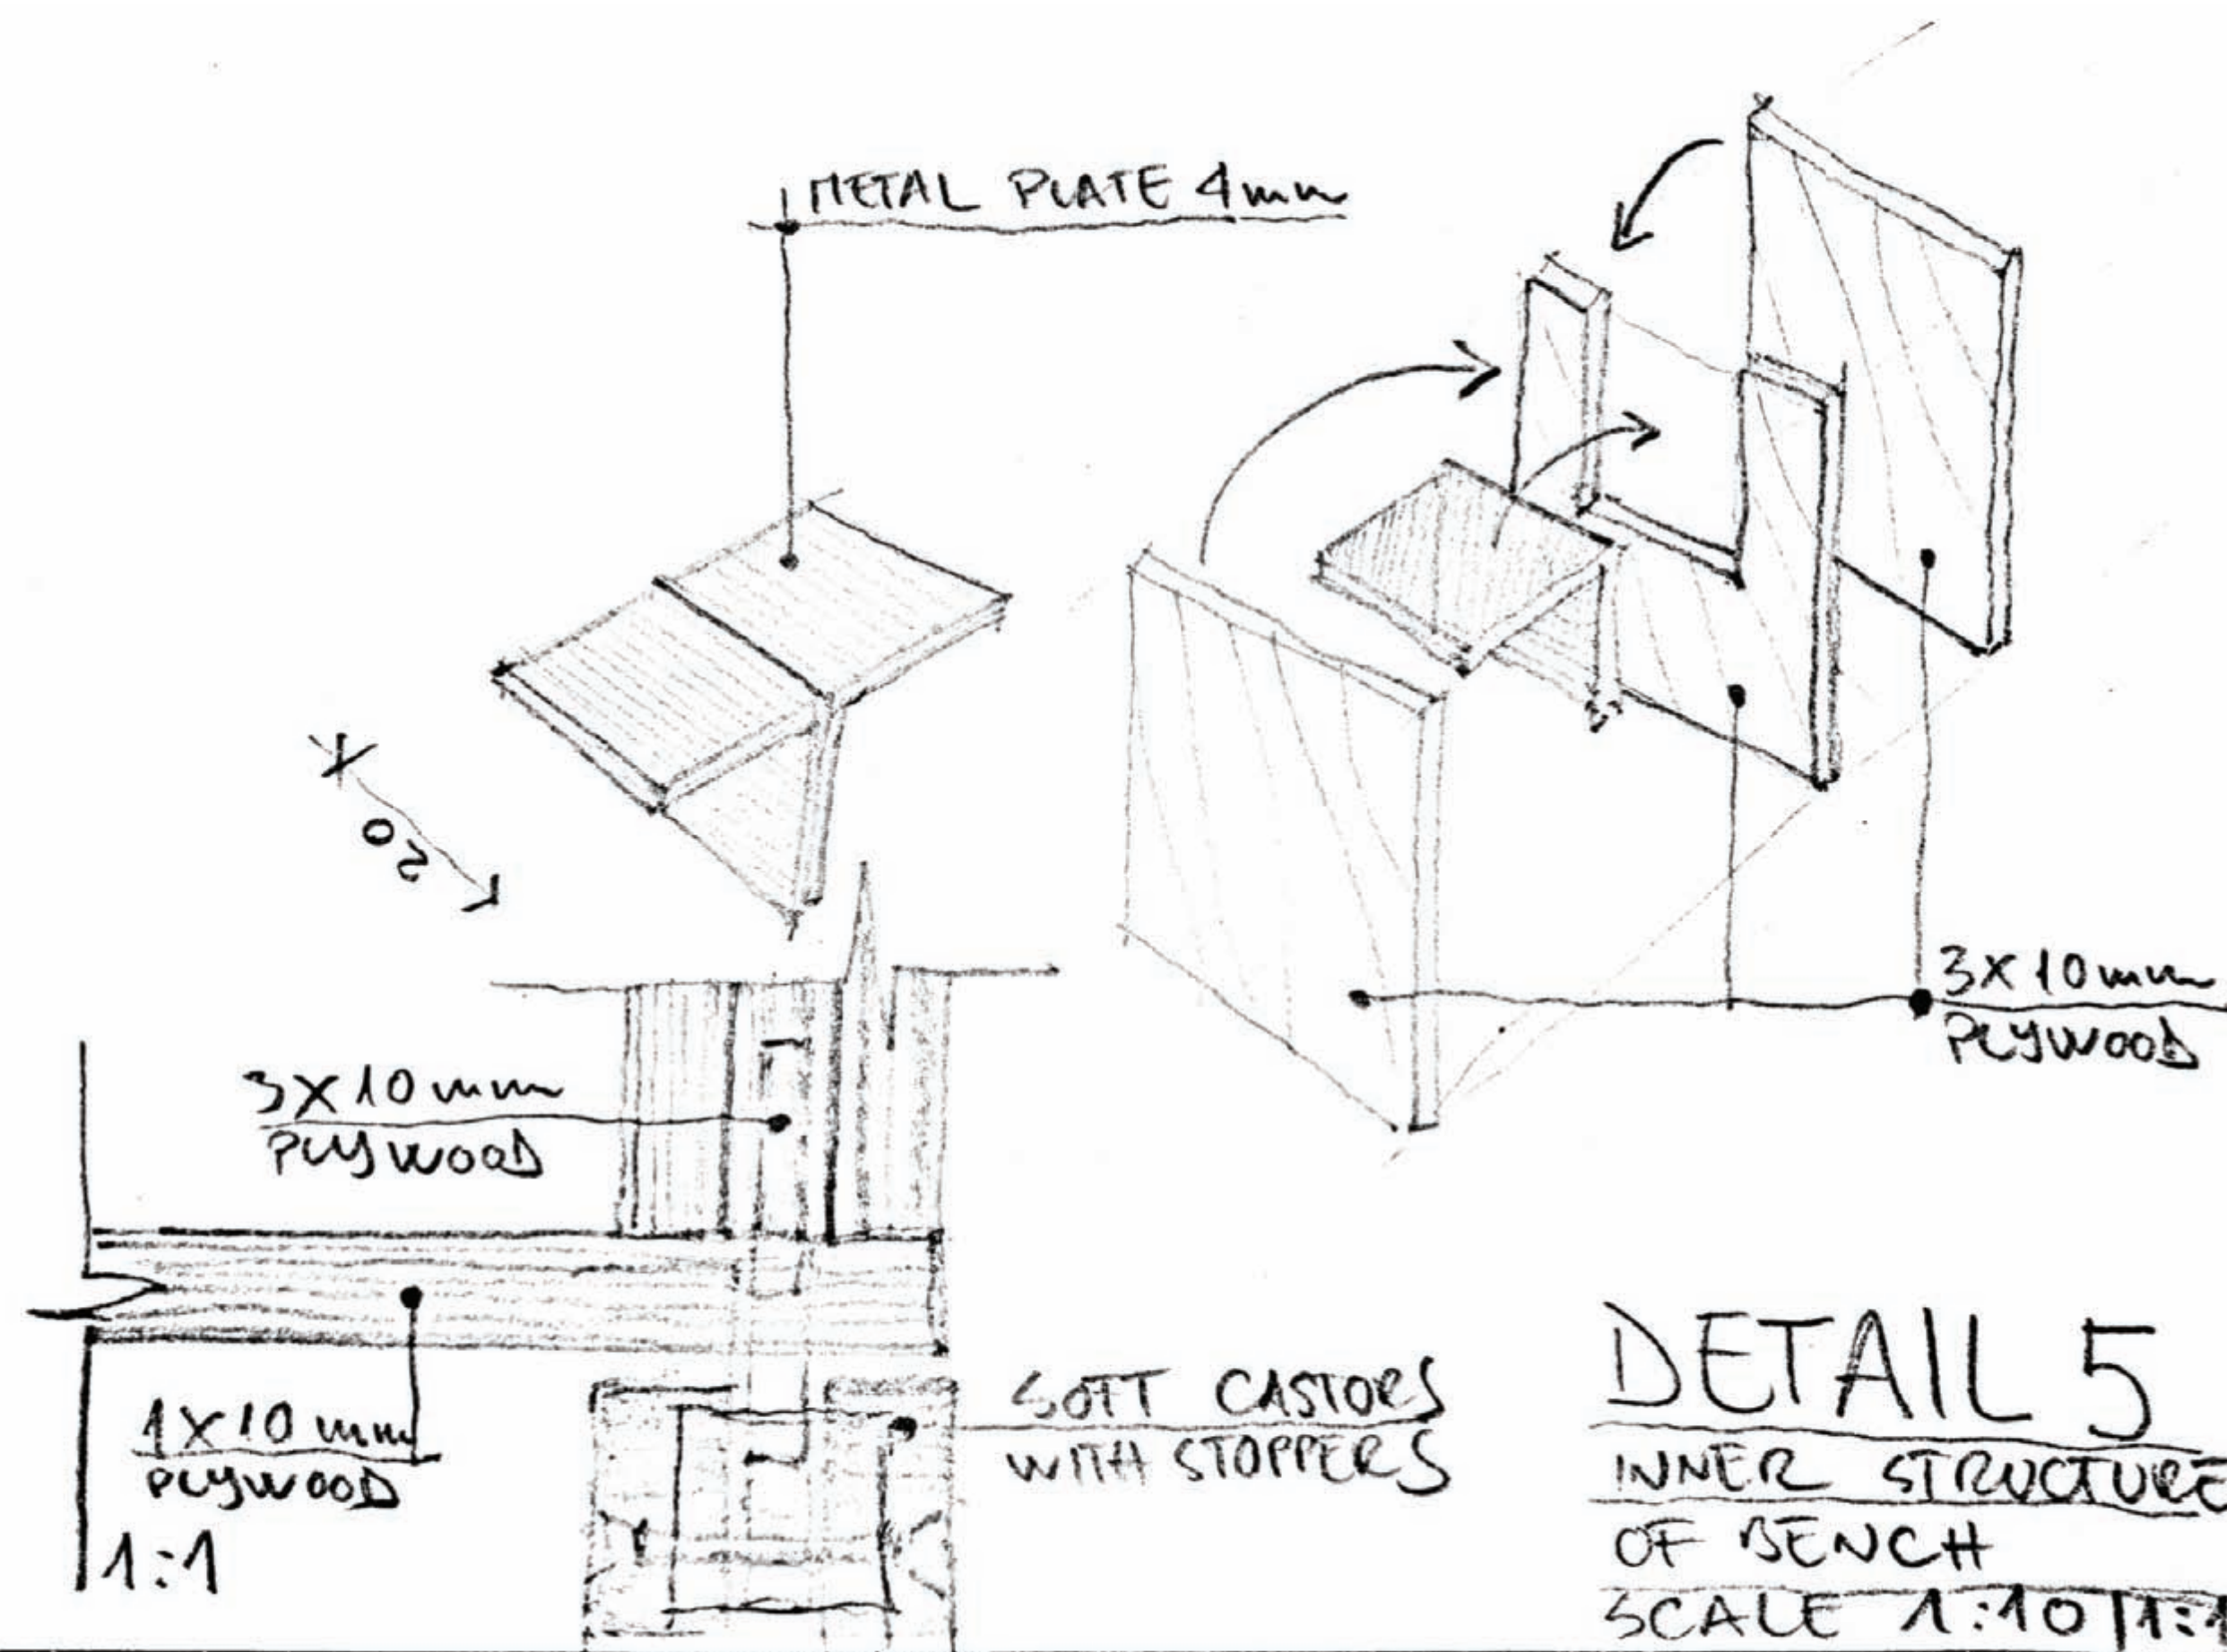 METAL PLATE 4mm
20
3X10mm
PLYWOOD
3X10mm
PLYWOOD
1X10mm
PLYWOOD
1:1
SOFT CASTORS
WITH STOPPERS
DETAIL 5
INNER STRUCTURE
OF BENCH
SCALE 1:10 | 1:1